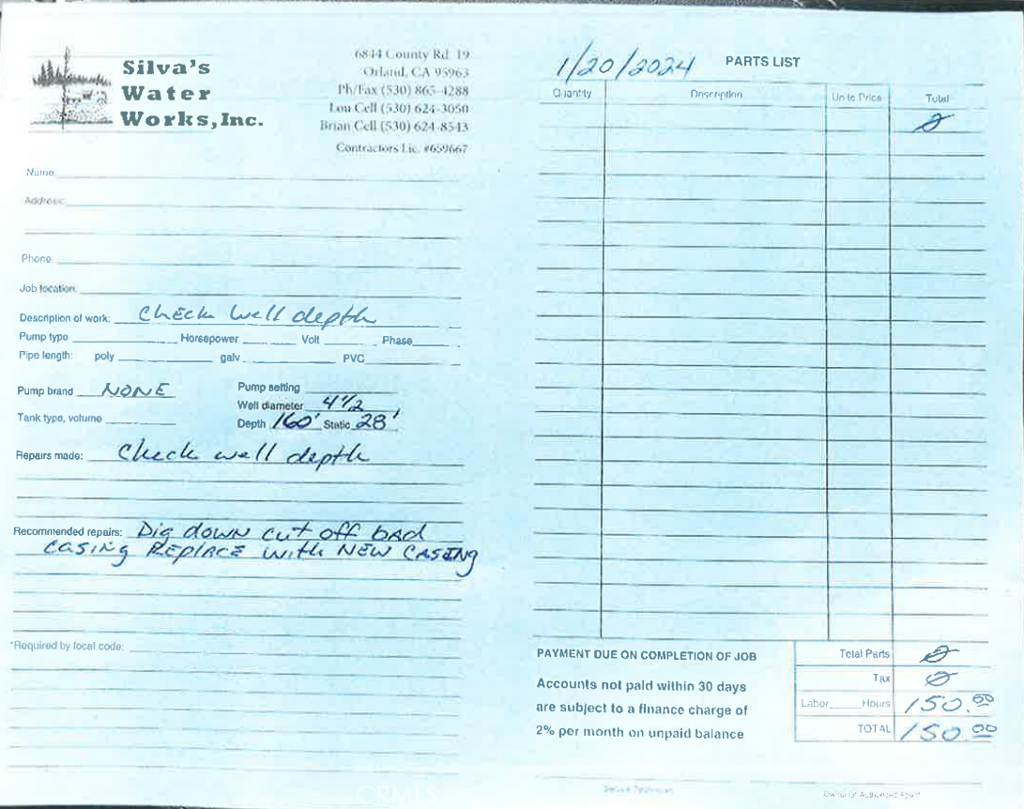 Silva's
Water
Works, Inc.
6844 County Rd. 19
Orland, CA 95963
Ph/Fax (530) 865-4288
Lou Cell (530) 624-3050
Brian Cell (530) 624-8543
Contractors Lic. #659667
Name
Address:
Phone
Job location:
Description of work: Check well depth
Pump type Horsepower Volt Phase
Pipe length: poly galv PVC
Pump brand NONE Pump setting
Well diameter 4 1/2
Tank type, volume Depth 160' Static 28'
Repairs made: Check well depth
Recommended repairs: Dig down cut off bad
casing REPlACE with NEW CASING
*Required by local code:
1/20/2024 PARTS LIST
Quantity Description Unite Price Total
0
PAYMENT DUE ON COMPLETION OF JOB
Accounts not paid within 30 days
are subject to a finance charge of
2% per month on unpaid balance
Total Parts 0
Tax 0
Labor Hours 150.00
TOTAL 150.00
Service Technician
Owner or Authorized Agent
CRMLS